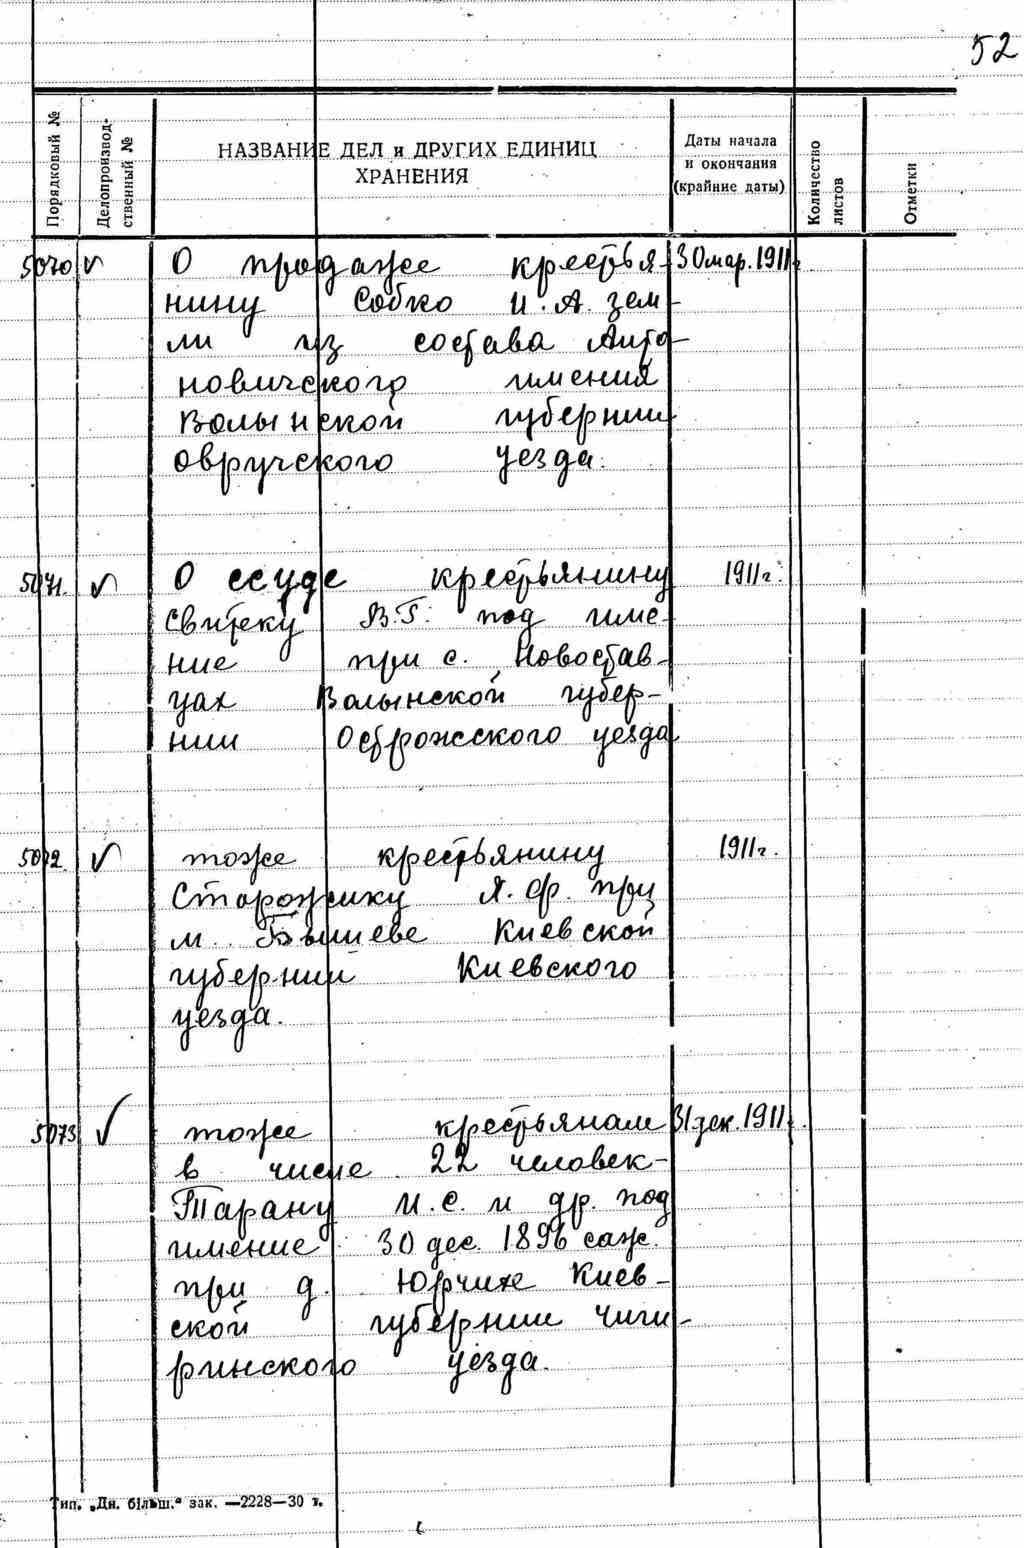 52
Порядковый №
Делопроизвод-
ственный №
НАЗВАНИЕ ДЕЛ и ДРУГИХ ЕДИНИЦ
ХРАНЕНИЯ
Даты начала
и окончания
(крайние даты)
Количество
листов
Отметки
5070 ✓ О продаже крестья- 30 мар. 1911 г.
нину Собко И. А. зем-
ли из состава Анто-
новичского имения
Волынской губернии
Овручского уезда.
5071. ✓ О ссуде крестьянину 1911 г.
Свитеку В. Г. под име-
ние при с. Новостав-
цах Волынской губер-
нии Острожского уезда
5072. ✓ тоже крестьянину 1911 г.
Сторожику Я. Ф. при
м. Бышеве Киевской
губернии Киевского
уезда.
5073 ✓ тоже крестьянам 31 дек. 1911 г.
в числе 22 человек-
Тарану И. С. и др. под
имение 30 дес. 1896 саж.
при д. Юрчихе Киев-
ской губернии Чиги-
ринского уезда.
Тип. „Дн. більш.“ зак. —2228—30 т.